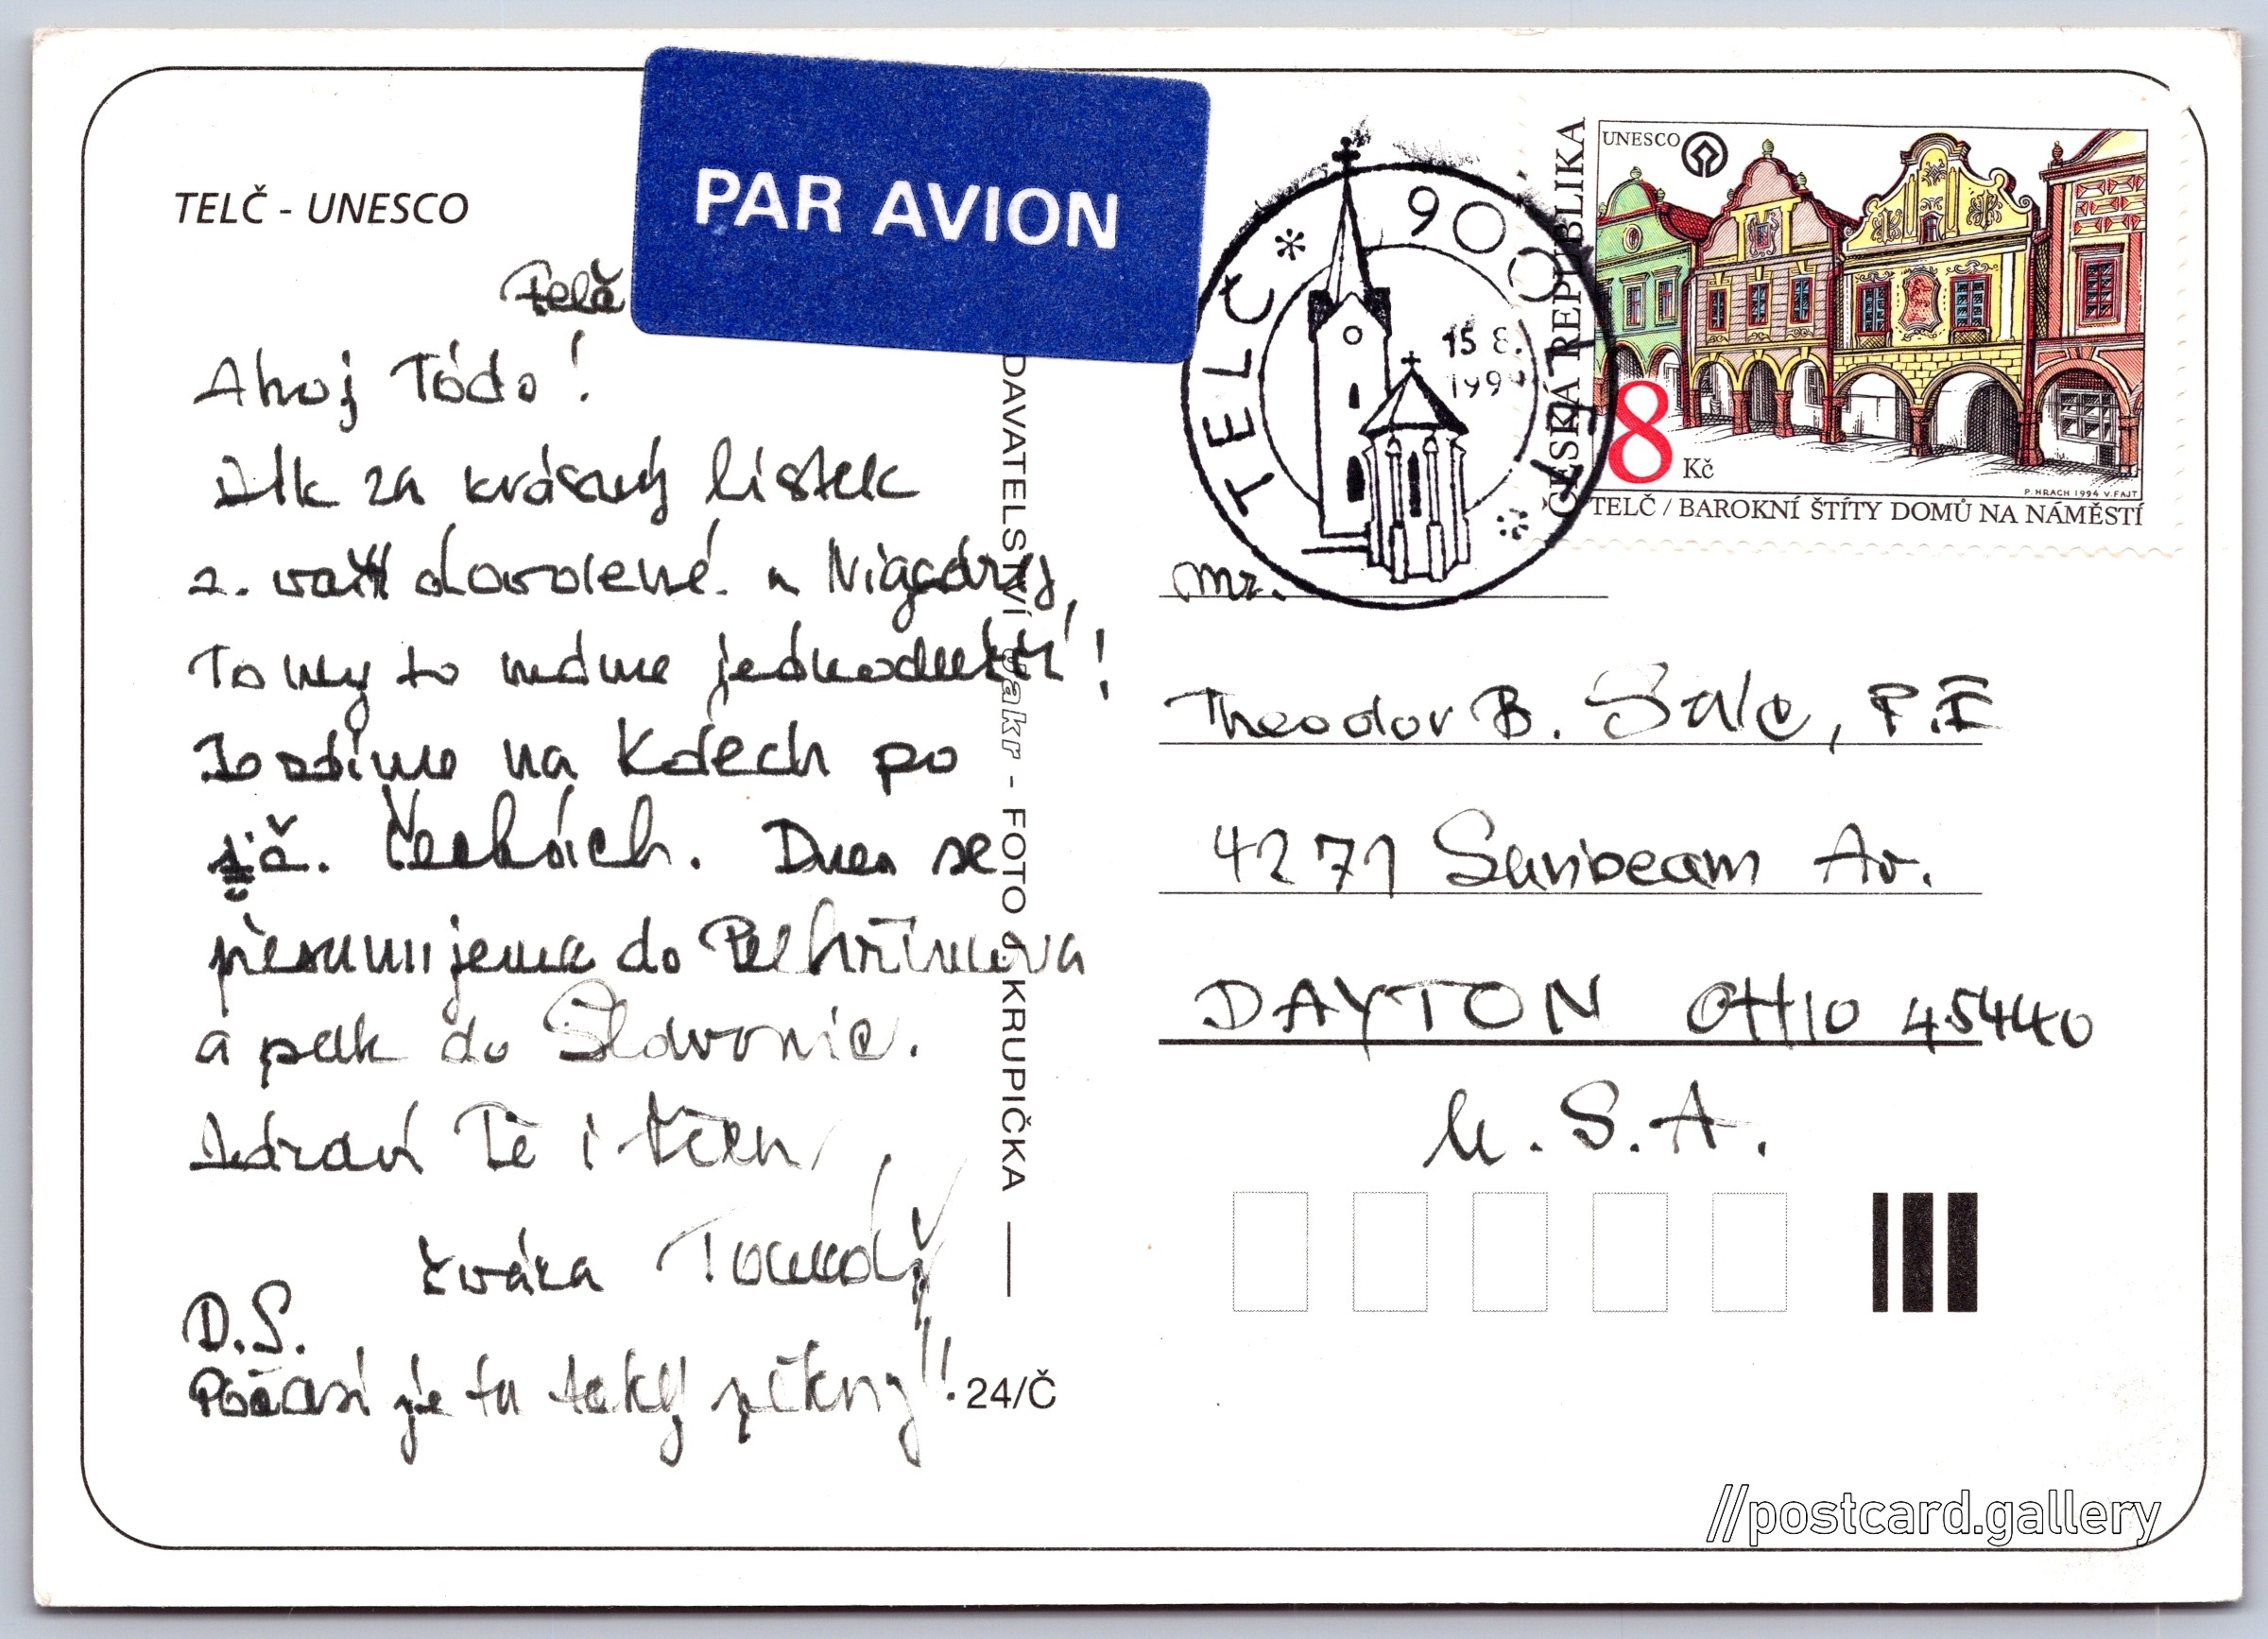 TELČ - UNESCO
PAR AVION
Telč
Ahoj Tódo!
Dík za krásný lístek
z. vaší dovolené. u Niagáry,
To my to máme jednodušší!
Jezdíme na kolech po
již. Čechách. Dnes se
přesunujeme do Pelhřimova
a pak do Slavonic.
Zdraví Tě i všem
D.S.
Počasí je tu taky pěkný!!
24/Č
DAVATELSTVÍ - FOTO J. KRUPIČKA
TELČ * 900 *
15 8.
199
UNESCO
ČESKÁ REPUBLIKA
8 Kč
P. HRACH 1994 V. FAJT
TELČ / BAROKNÍ ŠTÍTY DOMŮ NA NÁMĚSTÍ
Mr.
Theodor B. Sale, P.E
4271 Sunbeam Av.
DAYTON OHIO 45440
U.S.A.
//postcard.gallery